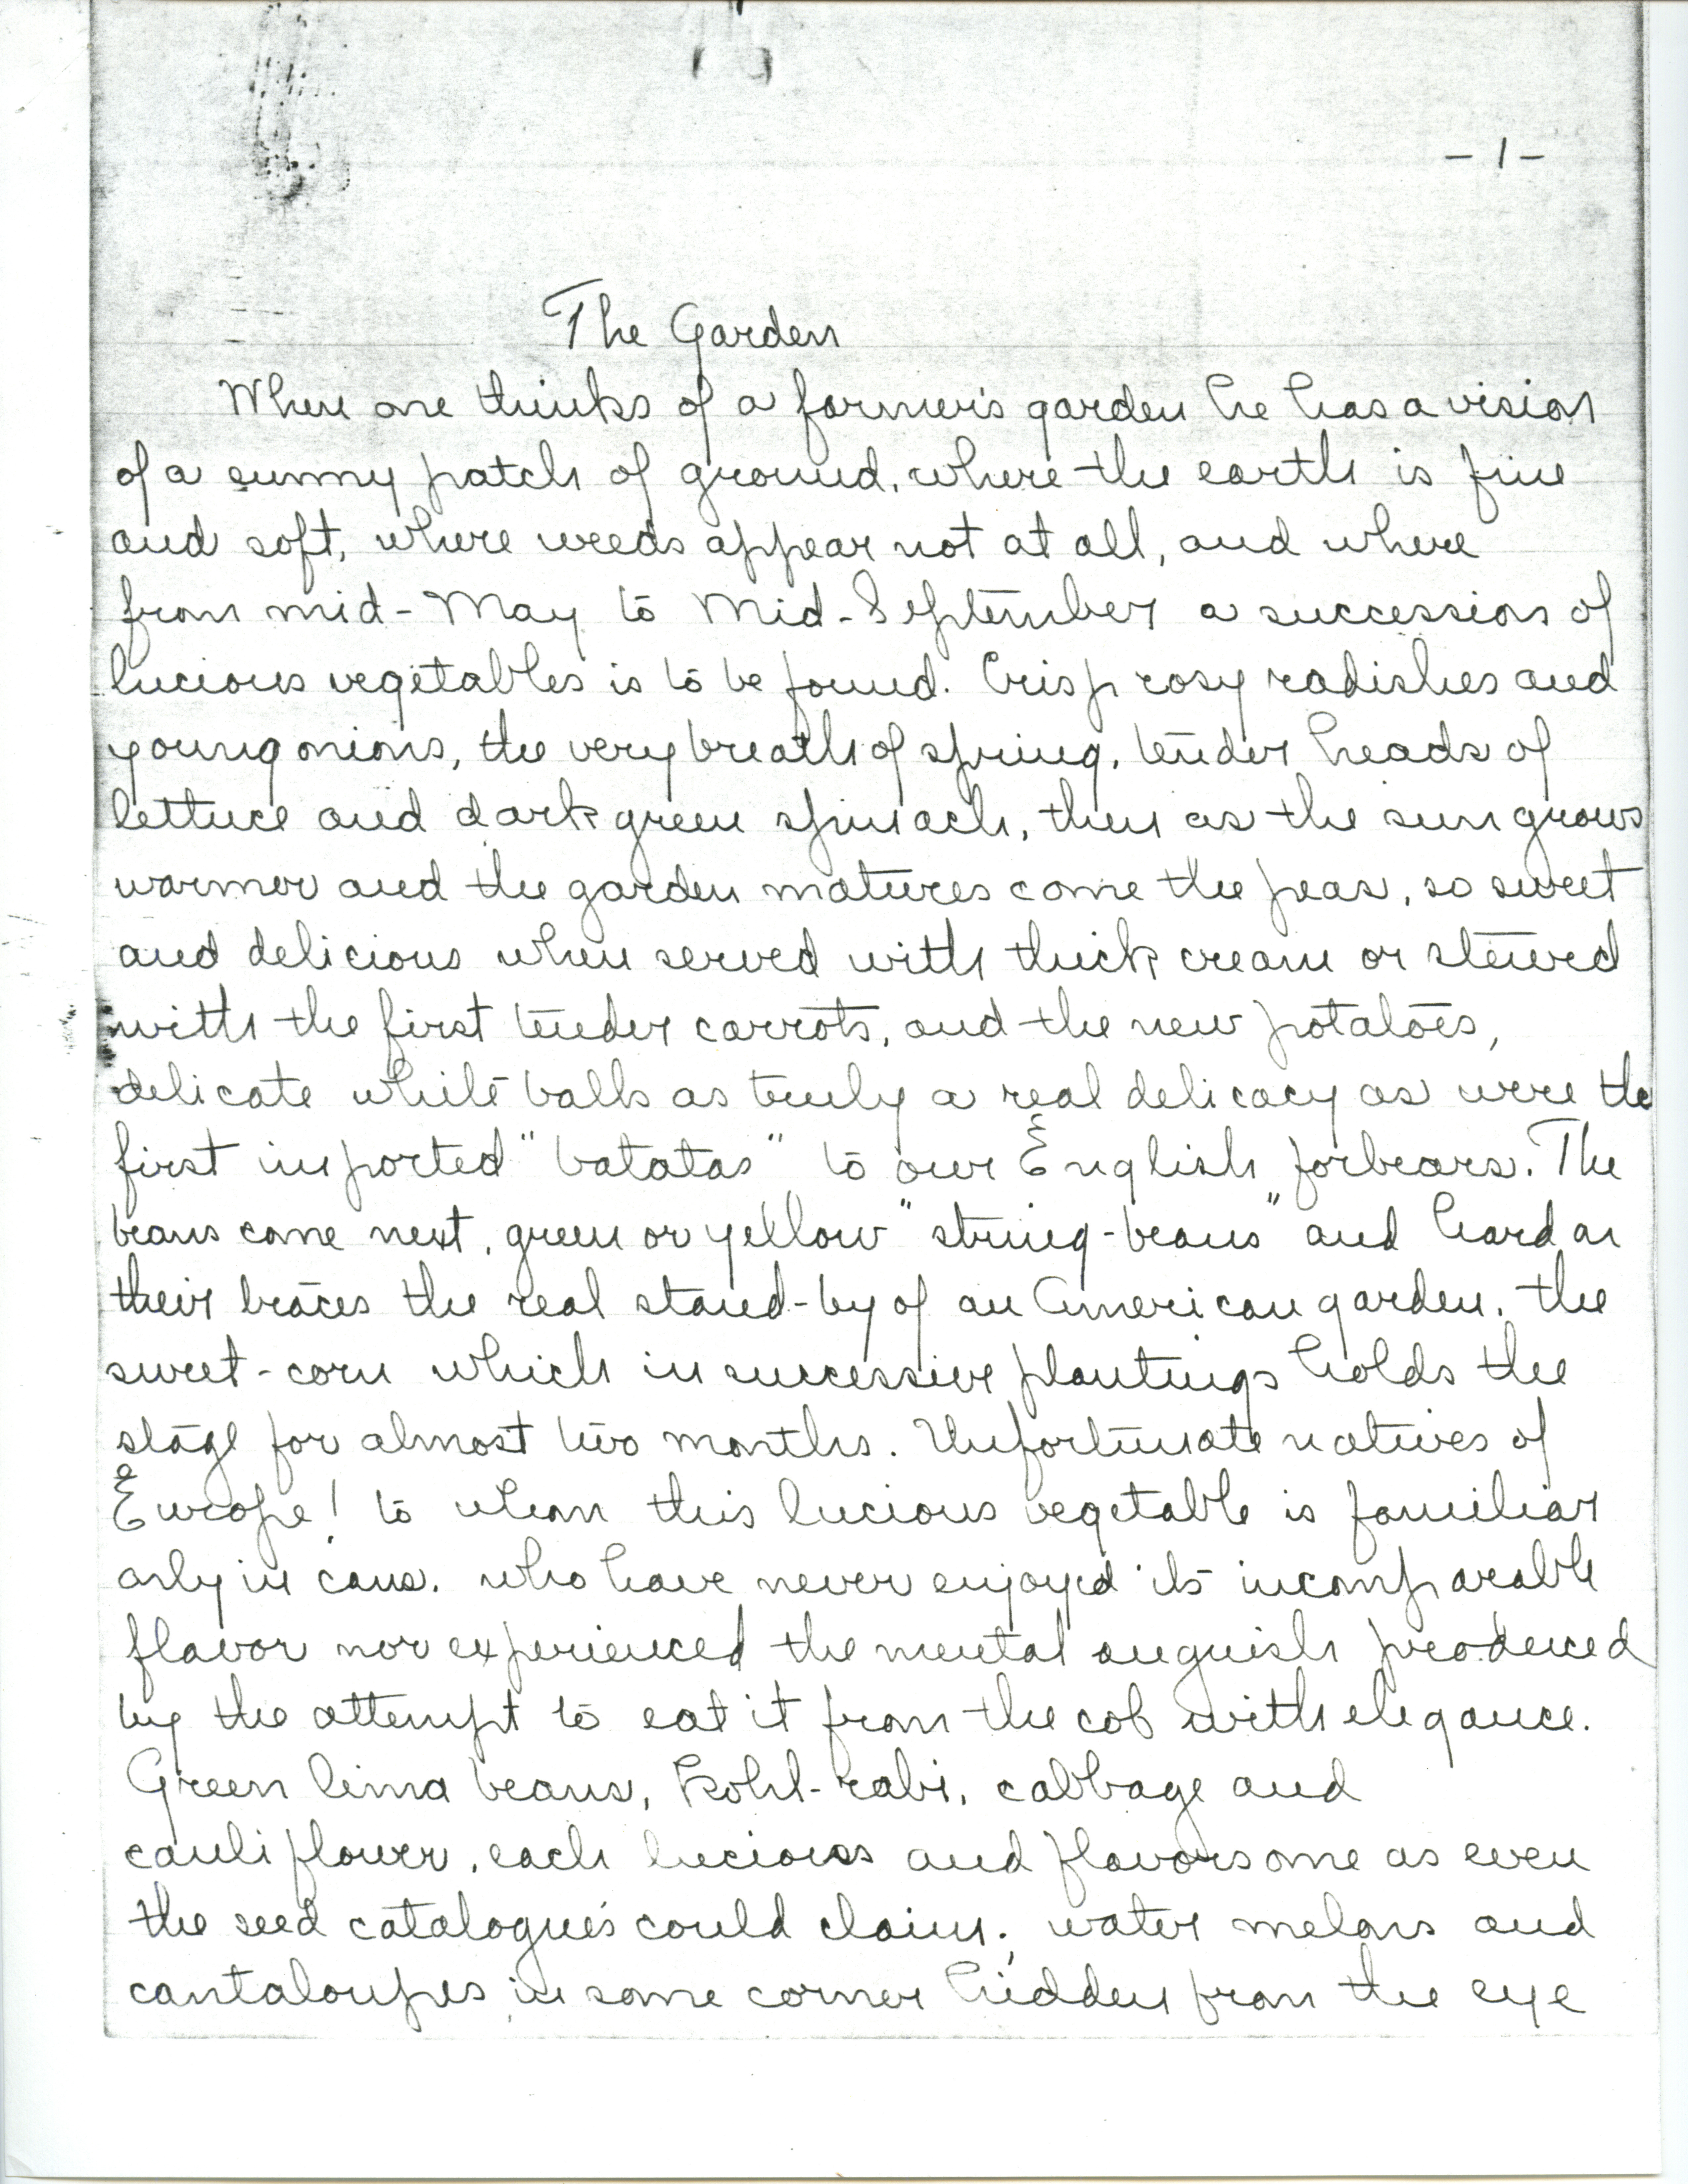 - 1 -
The Garden
When one thinks of a farmer's garden he has a vision
of a sunny patch of ground, where the earth is fine
and soft, where weeds appear not at all, and where
from mid-May to Mid-September a succession of
lucious vegetables is to be found. Crisp rosy radishes and
young onions, the very breath of spring, tender heads of
lettuce and dark green spinach, then as the sun grows
warmer and the garden matures come the peas, so sweet
and delicious when served with thick cream or stewed
with the first tender carrots, and the new potatoes,
delicate white balls as truly a real delicacy as were the
first imported "batatas" to our English forbears. The
beans come next, green or yellow "string-beans" and hard on
their traces the real stand-by of an American garden, the
sweet-corn which in successive plantings holds the
stage for almost two months. Unfortunate natives of
Europe! to whom this lucious vegetable is familiar
only in cans, who have never enjoyed its incomparable
flavor nor experienced the mental anguish produced
by the attempt to eat it from the cob with elegance.
Green lima beans, Kohl-rabi, cabbage and
cauliflower, each lucious and flavorsome as even
the seed catalogues could claim; water melons and
cantaloupes in some corner hidden from the eye